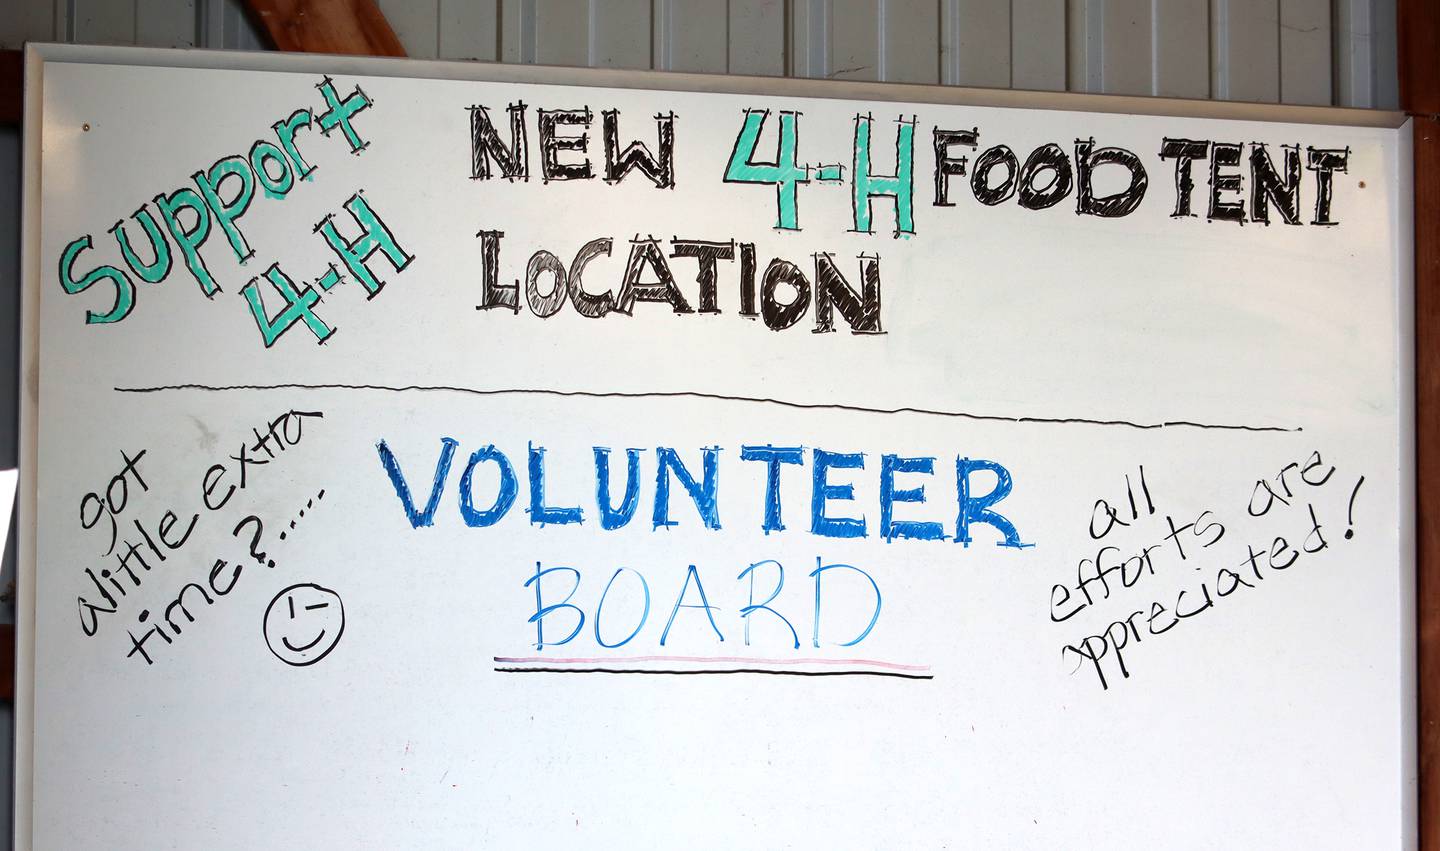 Support
4-H
NEW 4-H FOOD TENT
LOCATION
got
alittle extra
time?.....
VOLUNTEER
BOARD
all
efforts are
appreciated!